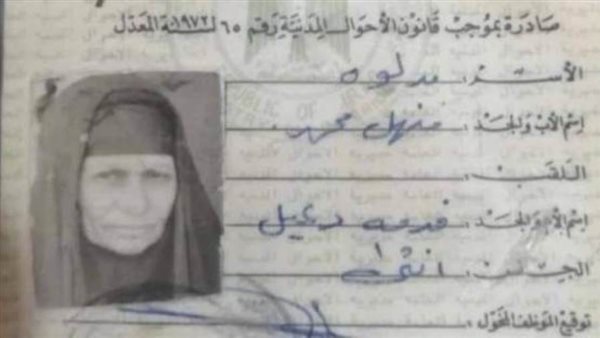 صادرة بموجب قانون الأحوال المدنية رقم ٦٥ لسنة ١٩٧٢ المعدل
الأسم:
إسم الأب والجد: منهل محمد
اللقب:
إسم الأم والجد: دعيل
الجنس: انثى
توقيع الموظف المخول: